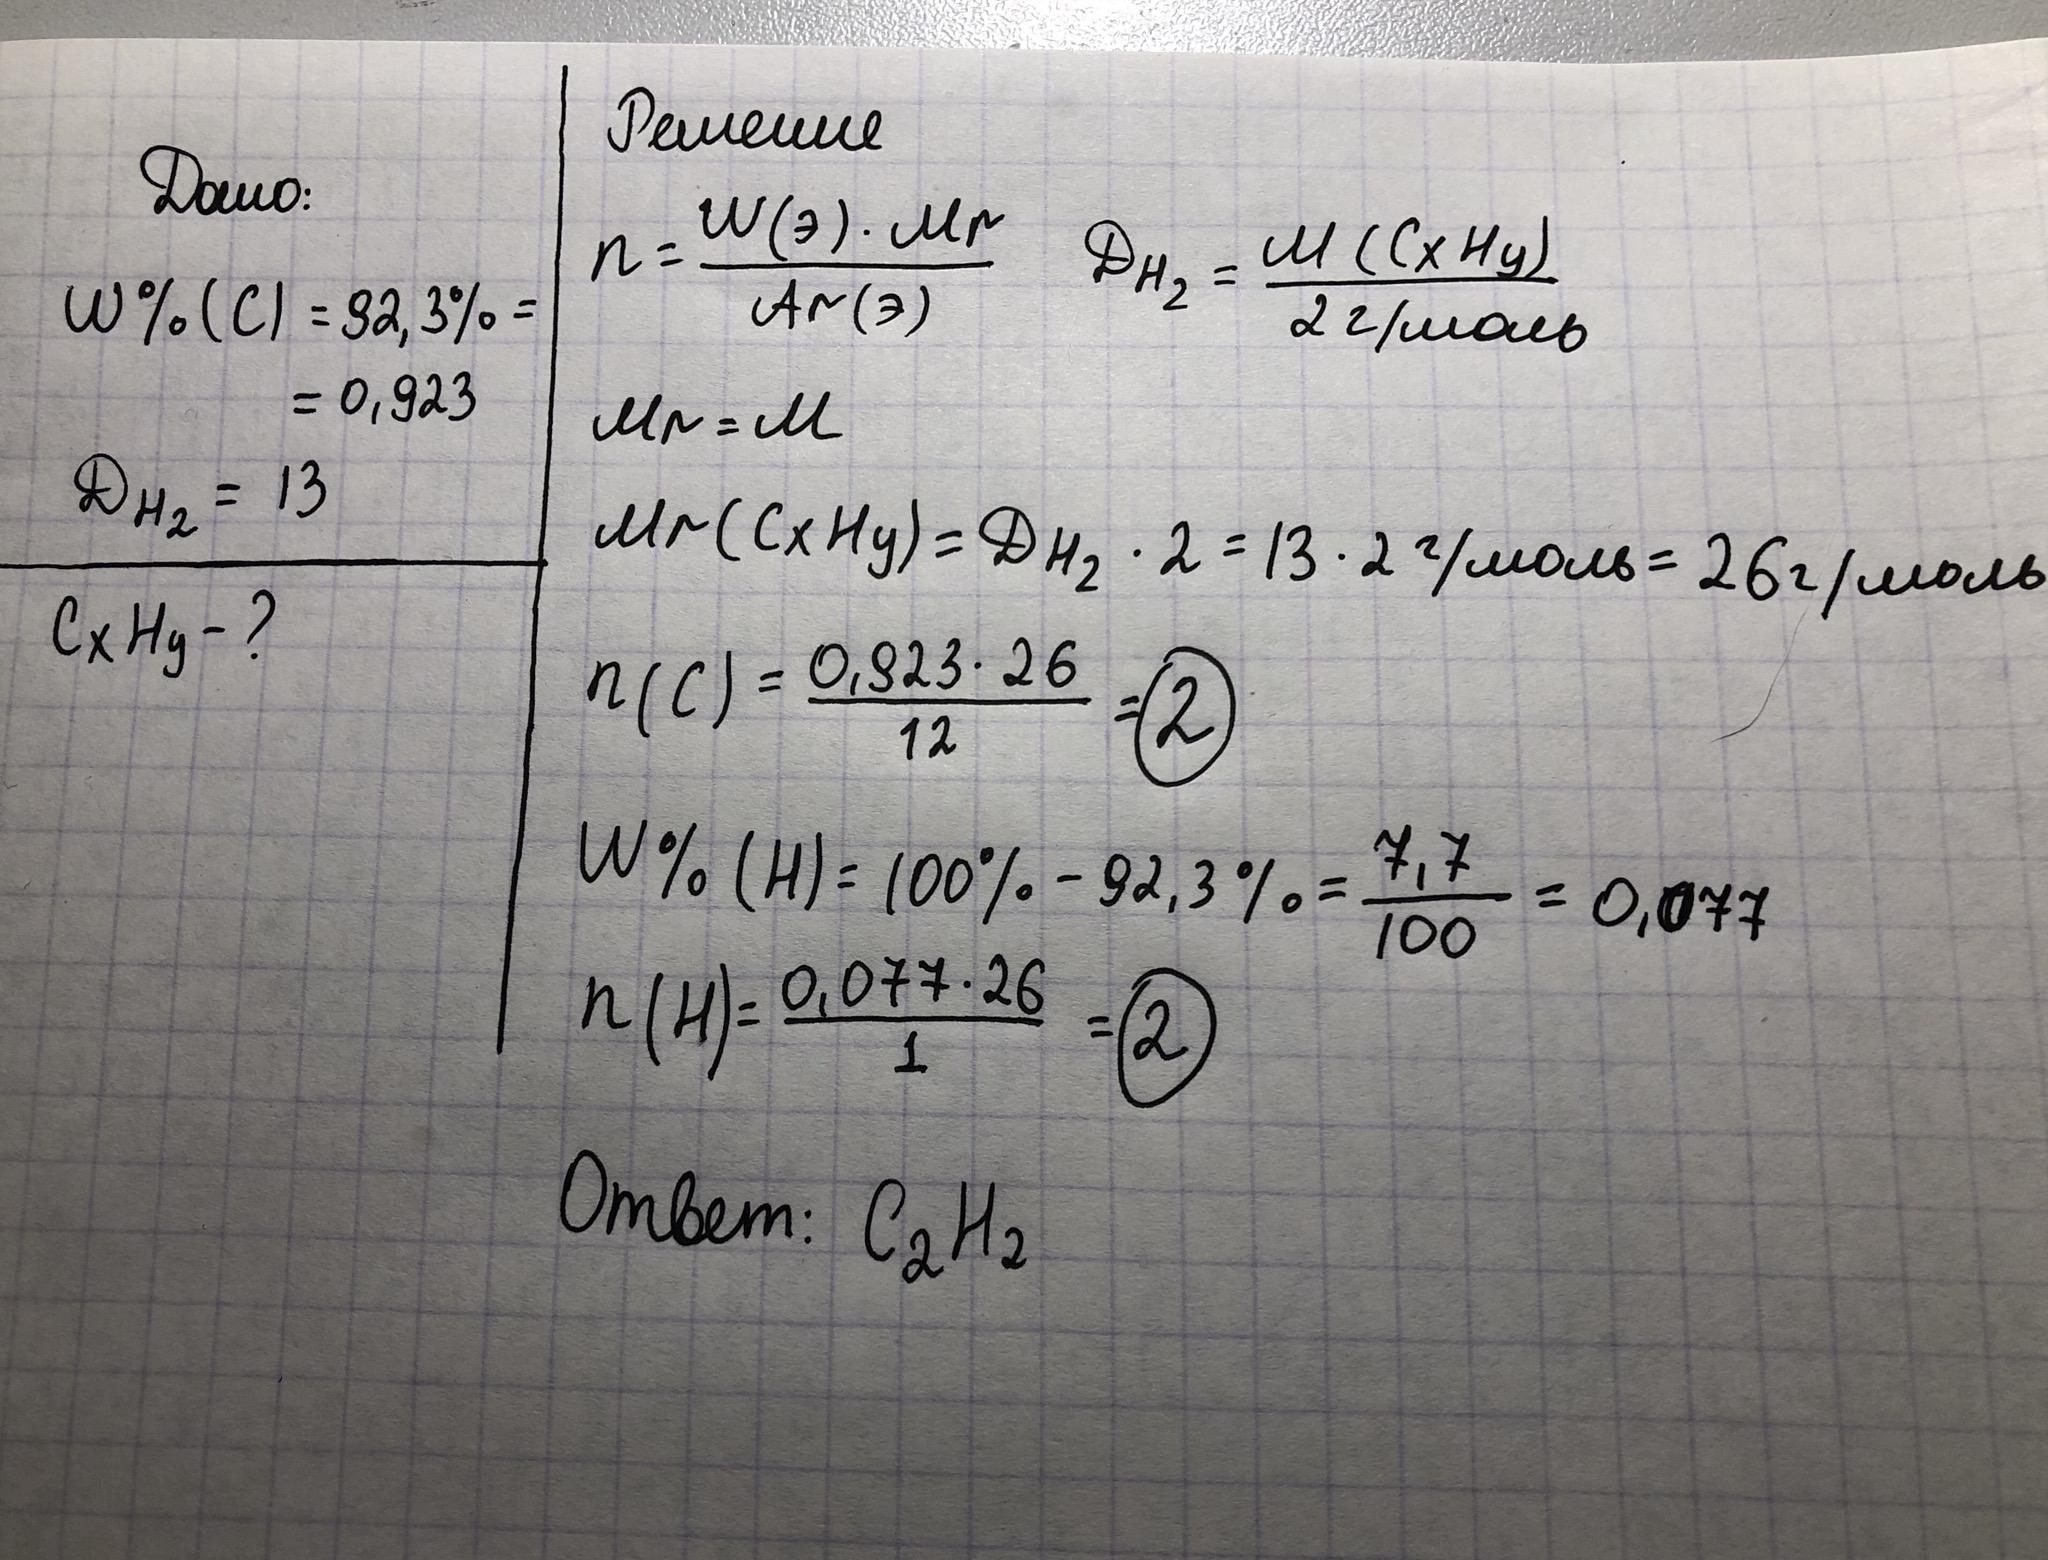 Дано:
W%(C) = 92,3% =
= 0,923
D_H₂ = 13
CxHy - ?
Решение
n = W(э) · Mr / Ar(э)    D_H₂ = M(CxHy) / 2 г/моль
Mr = M
Mr(CxHy) = D_H₂ · 2 = 13 · 2 г/моль = 26 г/моль
n(C) = 0,923 · 26 / 12 = 2
W%(H) = 100% - 92,3% = 7,7 / 100 = 0,077
n(H) = 0,077 · 26 / 1 = 2
Ответ: C₂H₂